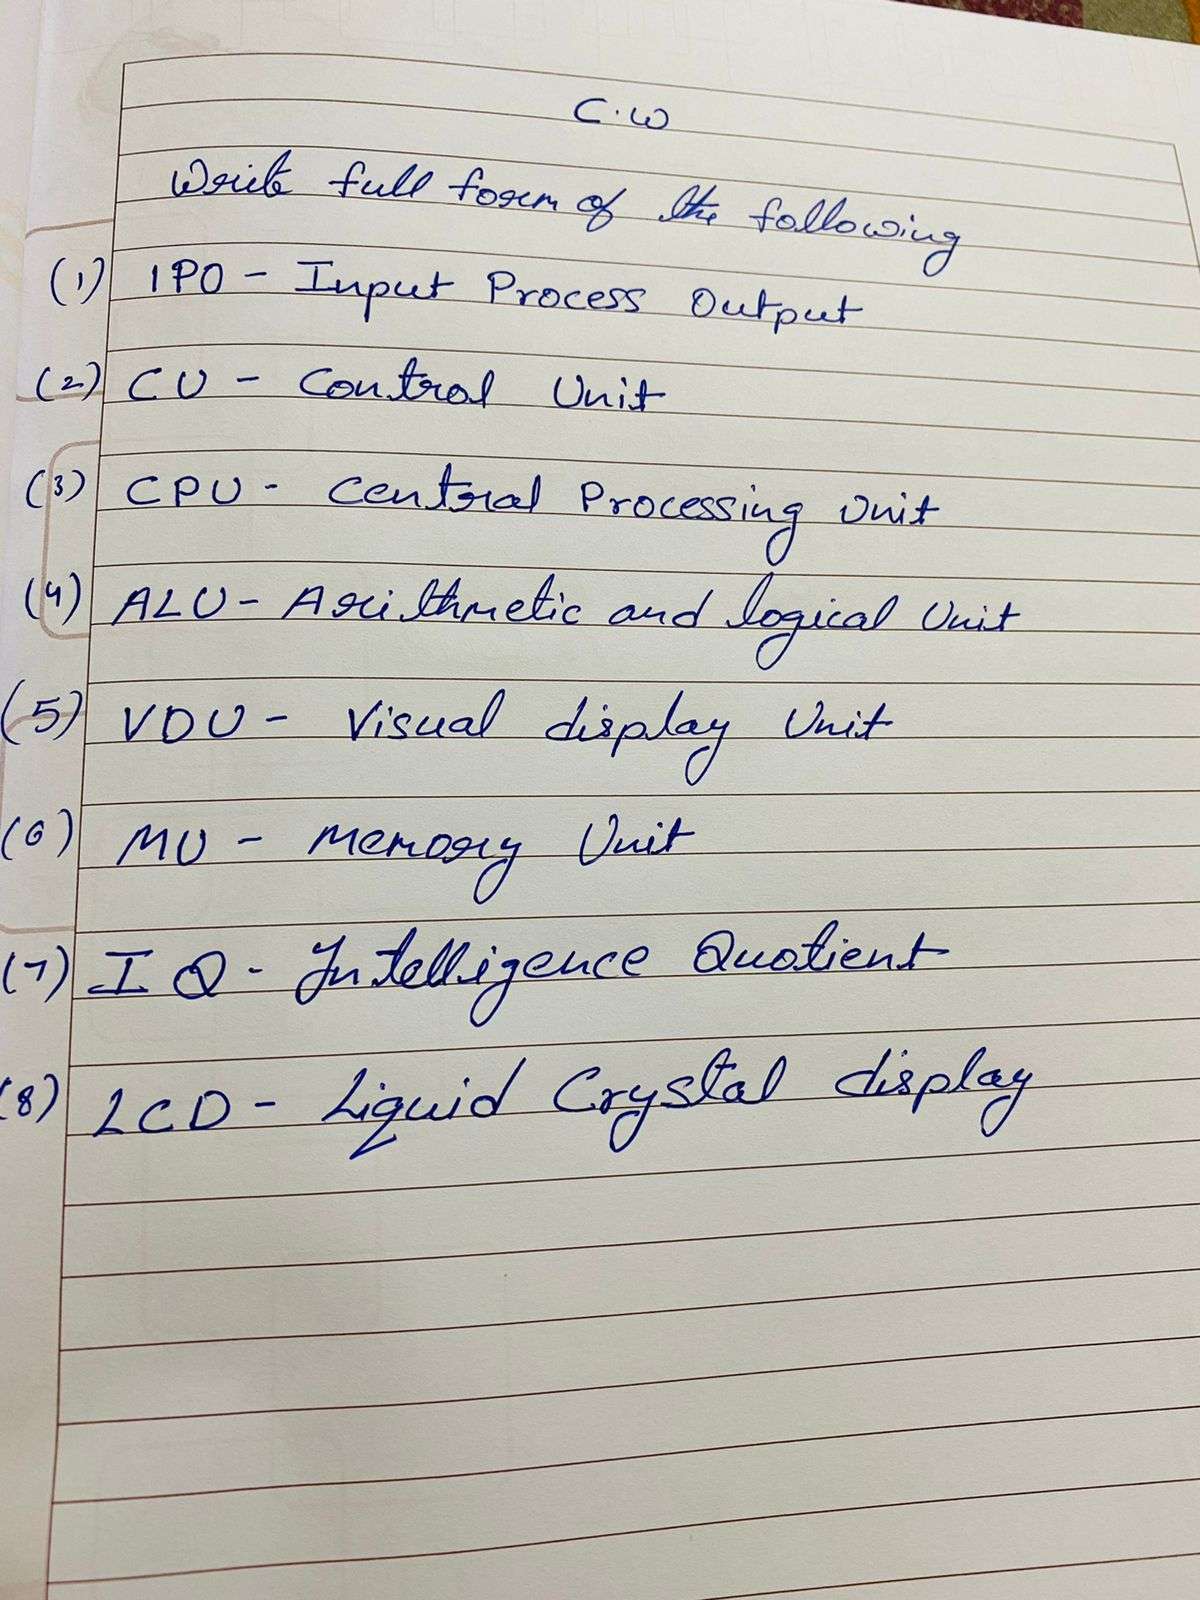 C.W
Write full form of the following
(1) IPO - Input Process Output
(2) CU - Control Unit
(3) CPU - Central Processing Unit
(4) ALU - Arithmetic and logical Unit
(5) VDU - Visual display Unit
(6) MU - Memory Unit
(7) IQ - Intelligence Quotient
(8) LCD - Liquid Crystal display